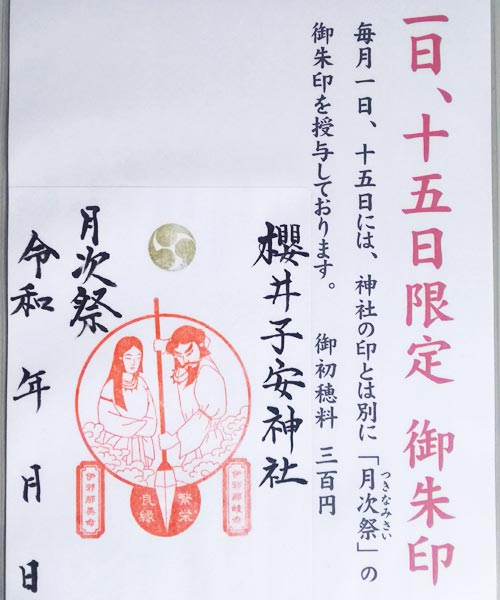 一日、十五日限定 御朱印
毎月一日、十五日には、神社の印とは別に「月次祭」の
つきなみさい
御朱印を授与しております。 御初穂料 三百円
櫻井子安神社
月次祭
令和 年 月 日
伊邪那岐命
繁栄
良縁
伊邪那美命